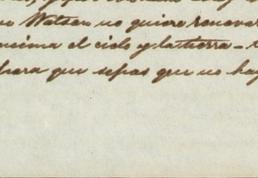 no Watson no quiere renovar
encima el cielo y la tierra -
para que sepas que no hay